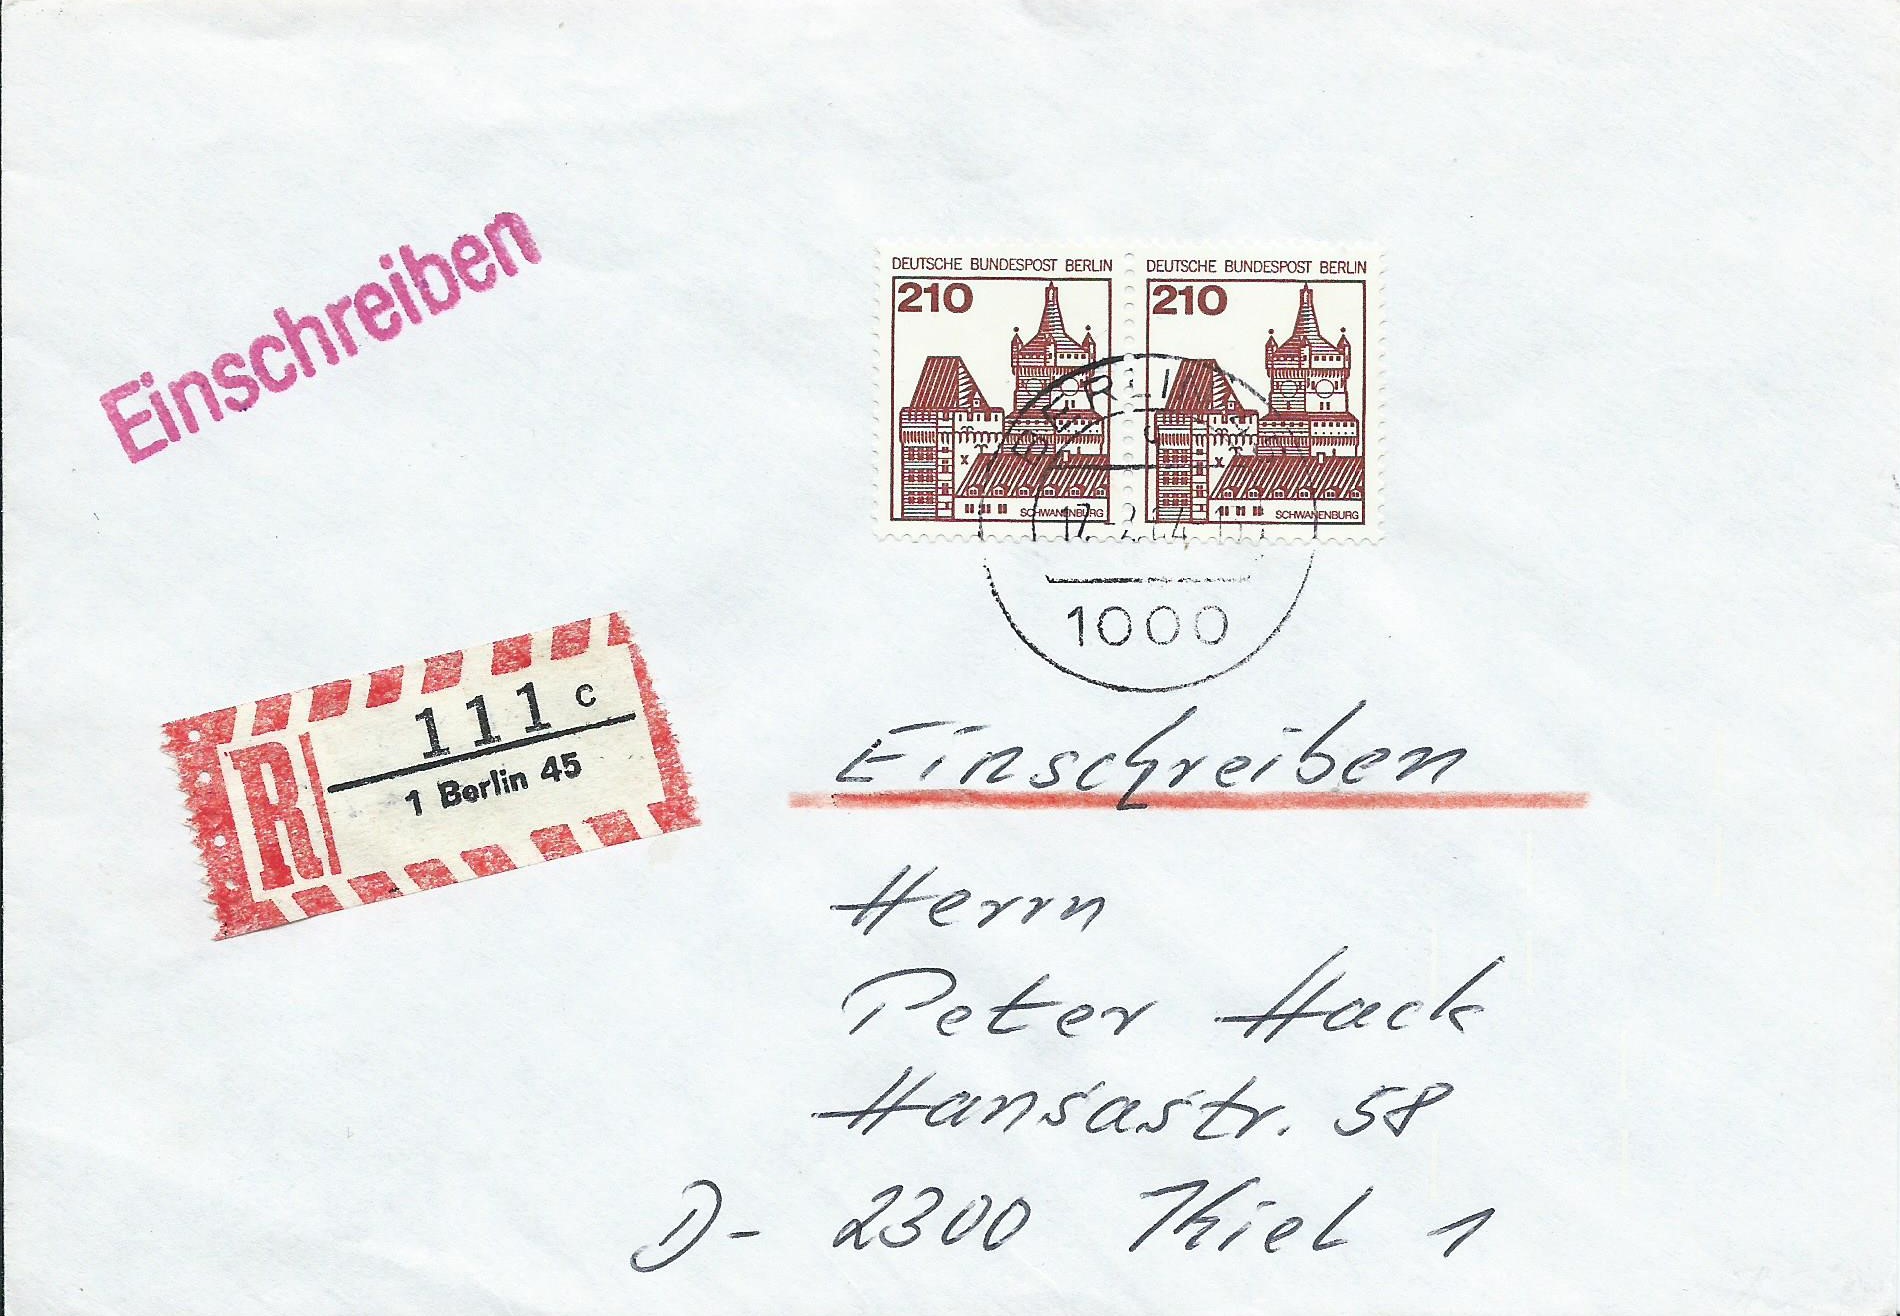 Einschreiben
DEUTSCHE BUNDESPOST BERLIN
210
SCHWANENBURG
DEUTSCHE BUNDESPOST BERLIN
210
SCHWANENBURG
BERLIN
1000
R
111 c
1 Berlin 45
Einschreiben
Herrn
Peter Hack
Hansastr. 58
D- 2300 Kiel 1